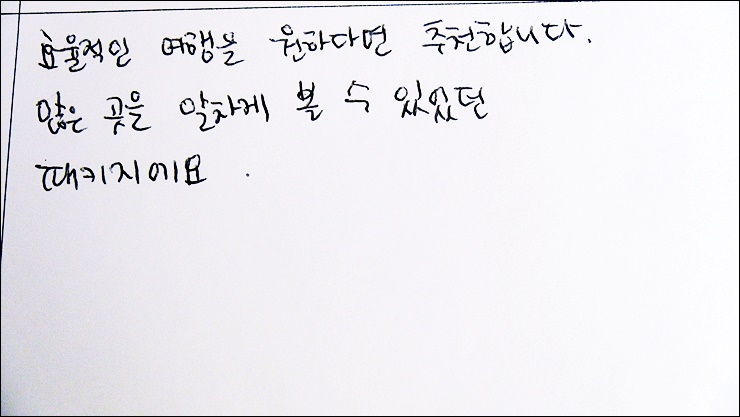 효율적인 여행을 원하다면 추천합니다.
많은 곳을 알차게 볼 수 있었던
패키지에요.